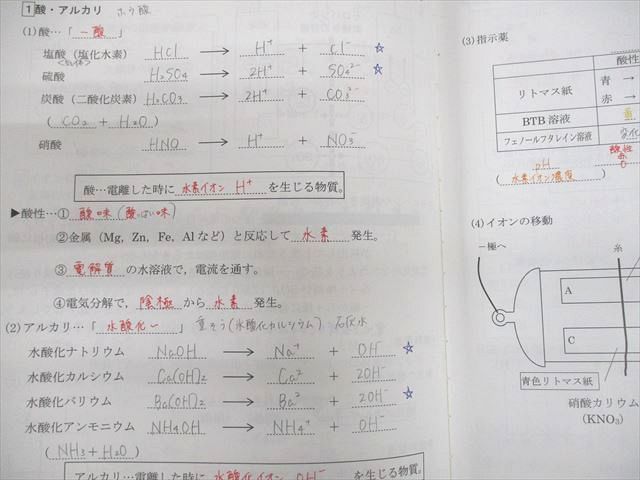 1 酸・アルカリ ホウ酸
(1) 酸…「一酸」
塩酸(塩化水素) HCl → H⁺ + Cl⁻ ☆
<気体>
硫酸 H₂SO₄ → 2H⁺ + SO₄²⁻ ☆
炭酸(二酸化炭素) H₂CO₃ → 2H⁺ + CO₃²⁻
(CO₂ + H₂O)
硝酸 HNO → H⁺ + NO₃⁻
酸…電離した時に 水素イオン H⁺ を生じる物質。
▶酸性…① 酸味(酸っぱい味)
②金属(Mg, Zn, Fe, Al など)と反応して 水素 発生。
③ 電解質 の水溶液で,電流を通す。
④電気分解で, 陰極 から 水素 発生。
(2) アルカリ…「水酸化〜」 重そう(水酸化カルシウム) 石灰水
水酸化ナトリウム NaOH → Na⁺ + OH⁻ ☆
水酸化カルシウム Ca(OH)₂ → Ca² + 2OH⁻
水酸化バリウム Ba(OH)₂ → Ba² + 2OH⁻ ☆
水酸化アンモニウム NH₄OH → NH₄⁺ + OH⁻
(NH₃ + H₂O)
アルカリ…電離した時に 水酸化イオン OH⁻ を生じる物質。
(3) 指示薬
酸性
リトマス紙 青 →
赤 →
BTB 溶液 黄
フェノールフタレイン溶液 変化
pH
(水素イオン濃度)
酸性
(4) イオンの移動
−極へ
糸
A
C
青色リトマス紙
硝酸カリウム
(KNO₃)